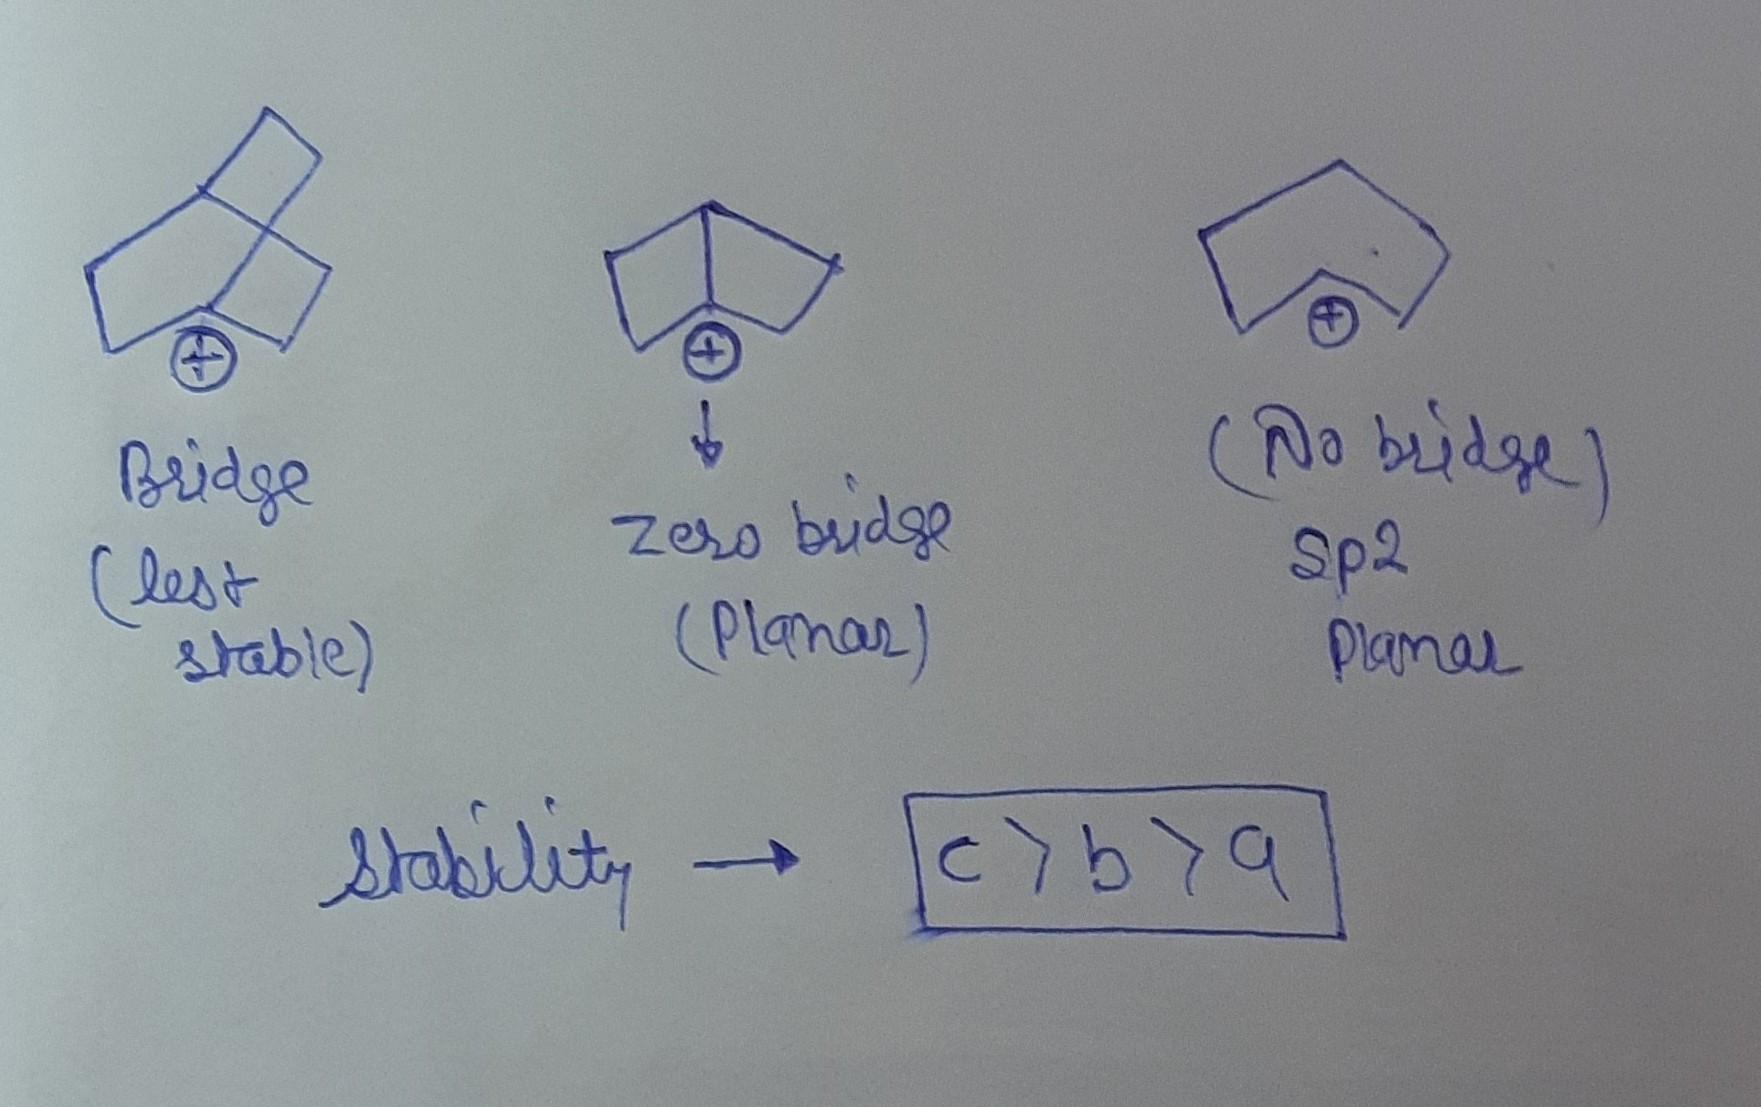 +
+
+
Bridge
(lest
stable)
Zero bridge
(Planar)
(No bridge)
Sp2
Planar
Stability → c > b > a